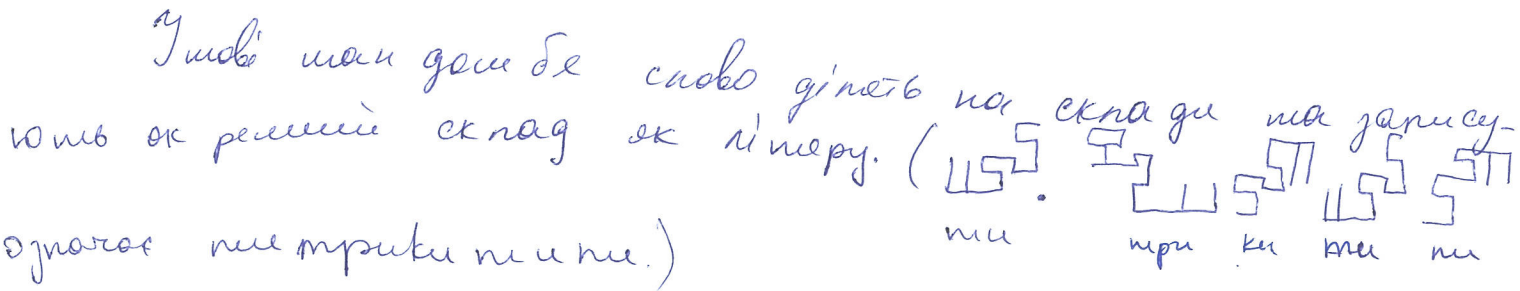 У мові ман дом бе слово ділять на склади та запису-
ють окремий склад як літеру. (
ти три ки ти пи
означає титрикитипи.)